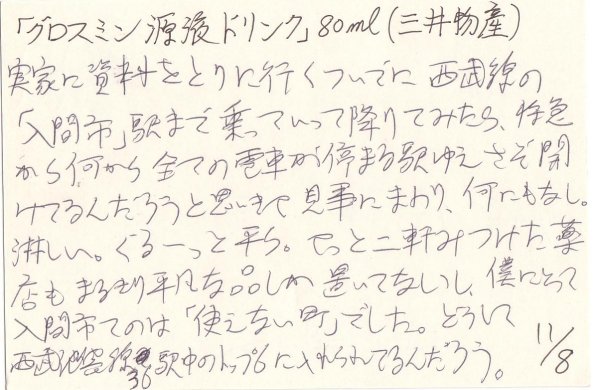 「グロスミン源液ドリンク」80ml(三井物産)
実家に資料をとりに行くついでに西武線の
「入間市」駅まで乗っていって降りてみたら、特急
から何から全ての電車が停まる駅ゆえさぞ開
けてるんだろうと思いきや見事にまわり、何にもなし。
淋しい。ぐるーっと平ら。やっと二軒みつけた薬
店もまるきり平凡な品しか置いてないし、僕にとって
入間市てのは「使えない町」でした。どうして
西武池袋線36駅中のトップ6に入れられてるんだろう。
11/8